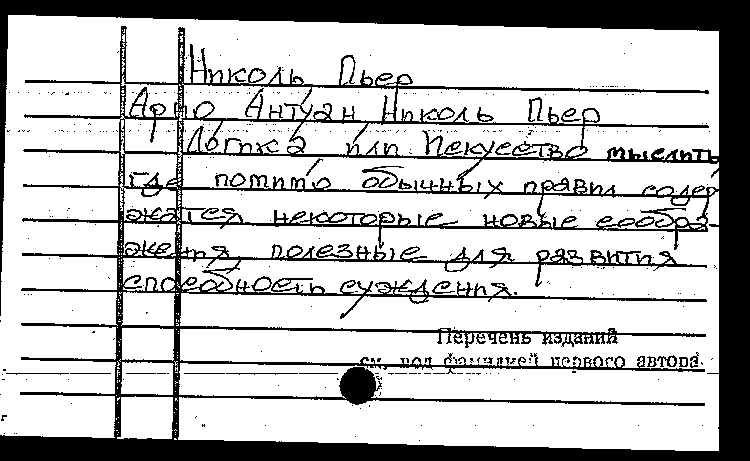 Николь, Пьер
Арно Антуан, Николь Пьер
Логика или Искусство мыслить
где помимо обычных правил содер
жатся некоторые новые сообра-
жения, полезные для развития
способность суждения.
Перечень изданий
см. под фамилией первого автора.